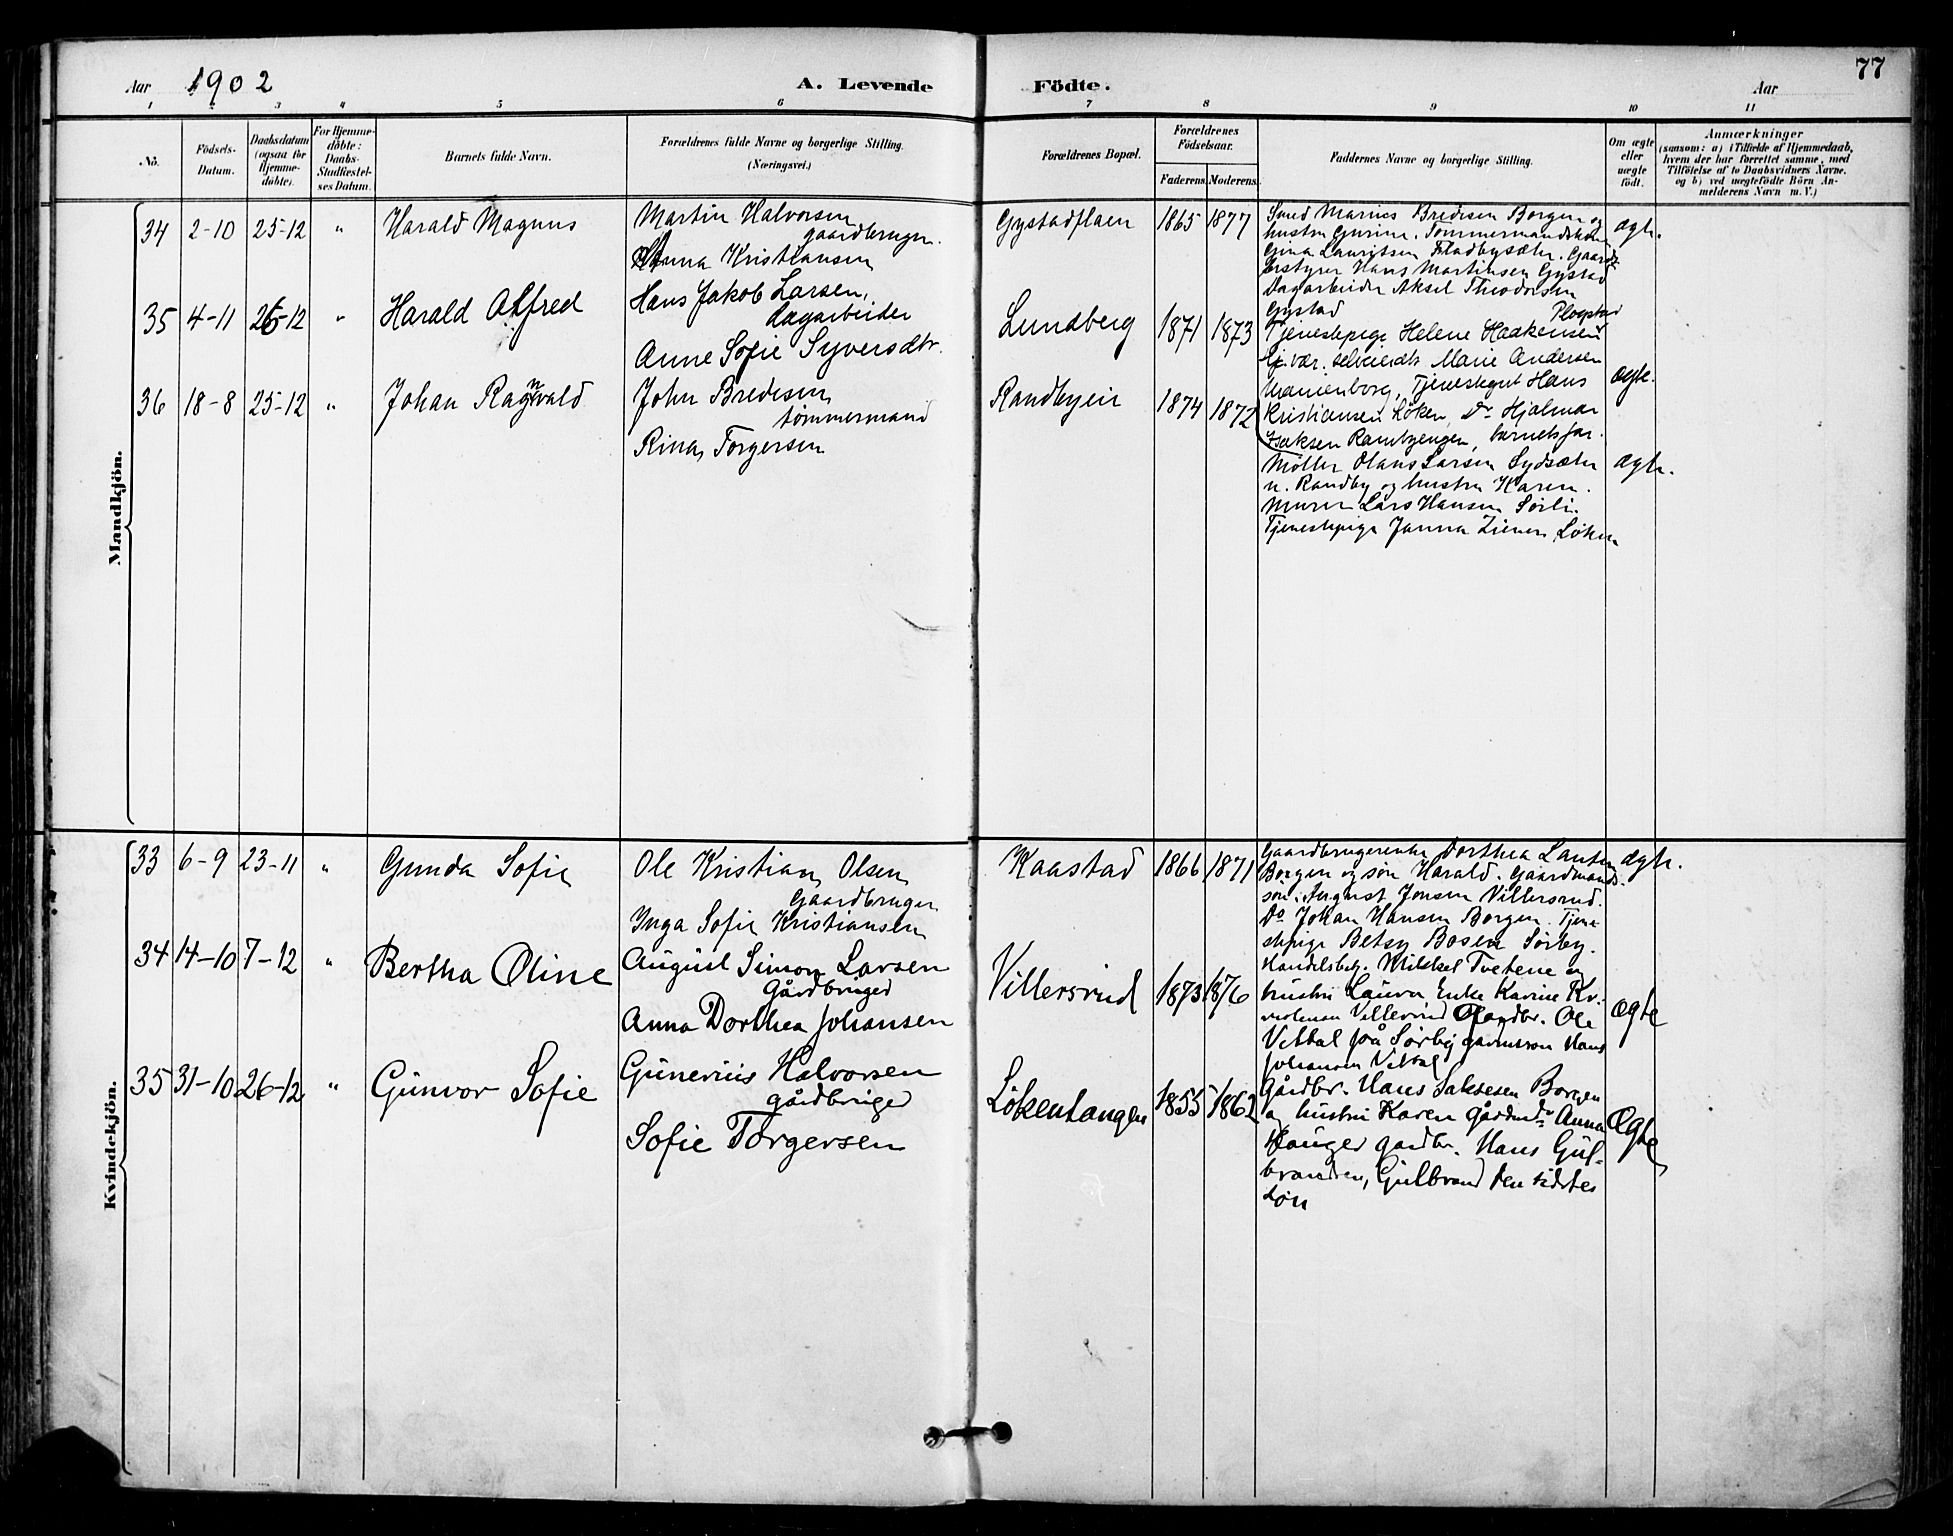 77
Aar 1902 A. Levende Födte. Aar
1 2 3 4 5 6 7 8 9 10 11
No.
Födsels-Datum.
Daabsdatum (ogsaa for Hjemme-döbte).
For Hjemme-döbte: Daabs-Stadfæstel-ses Datum.
Barnets fulde Navn.
Forældrenes fulde Navne og borgerlige Stilling. (Næringsvei.)
Forældrenes Bopæl.
Forældrenes Födselsaar.
Faderens. Moderens.
Faddernes Navne og borgerlige Stilling.
Om ægte eller uægte födt.
Anmærkninger
(saasom: a) i Tilfælde af Hjemmedaab,
hvem der har forrettet samme, med
Tilföielse af to Daabsvidners Navne,
og b) ved uægtefödte Börn An-
melderens Navn m. V.)
Mandkjön.
34 2-10 25-12 " Harald Magnus
Martin Halvorsen
gaardbruger.
Anna Kristiansen
Gystadflaen 1865 1877
Smed Marius Bredesen Borgen og
hustru Gurine. Tømmermandskone
Gina Lauritsen Fladbysæter. Gaards-
bestyrer Hans Martinsen Gystad
Dagarbeider Aksel Theodorsen
Gystad
ægte.
35 4-11 26-12 " Harald Alfred
Hans Jakob Larsen,
dagarbeider
Anne Sofie Syversdtr.
Lundberg 1871 1873
Plogstad
Tjenestepige Helene Haakensen
Marie Andersen
Marienborg, Tjenestegut Hans
Kristiansen Løken, Do Hjalmar
Isaksen Rambyengen, barnets far.
ægte.
36 18-8 25-12 " Johan Ragnvald
John Bredesen,
tømmermand
Rina Torgersen
Randbyeie 1874 1872
Møller Olaus Larsen Sydsæter
n. Randby og hustru Karen.
Murer Lars Hansen Sørli.
Tjenestepige Janna Løken
ægte.
Kvindekjön.
33 6-9 23-11 " Gunda Sofie
Ole Kristian Olsen
Gaardbruger
Inga Sofie Kristiansen
Kaastad 1866 1871
Gaardbrugerenke Dorthea Larsen
Borgen og søn Harald. Gaardmands-
søn. August Jonsen Villersrud.
Do Johan Hansen Borgen. Tjene-
stepige Betsy Bosen Sørby.
ægte.
34 14-10 7-12 " Bertha Oline
August Simon Larsen
Gårdbruger
Anna Dorthea Johansen
Villersrud 1873 1876
Handelsbetj. Mikkel Tvetene og
hustru Laura Enke Karine
Villersrud Gaardbr. Ole
Vettal på Sørby gårdmsøn Hans
Johansen Vettal
ægte
35 31-10 26-12 " Gunvor Sofie
Gunerius Halvorsen
gårdbruger
Sofie Torgersen
Løkentangen 1855 1862
Gårdbr. Hans Saksesen Borgen
og hustru Karen gårdmdr Anna
Hauger gardbr. Hans Gul-
brandsen, Gulbrand den sidstes
søn
Ægte